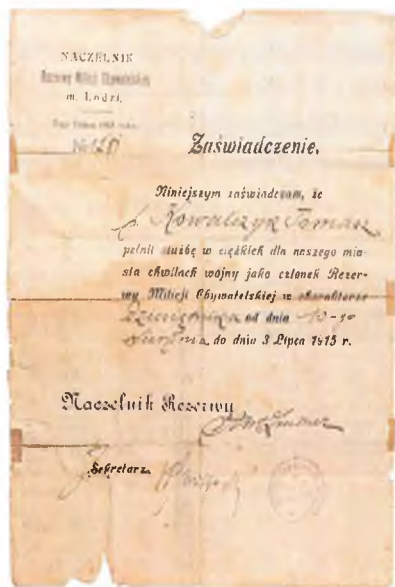 NACZELNIK
Rezerwy Milicji Obywatelskiej
m. Łodzi.
Zaświadczenie.
Niniejszym zaświadczam, że
p. Kowalczyk Tomasz
pełnił służbę w ciężkich dla naszego mia-
sta chwilach wojny jako członek Rezer-
wy Milicji Obywatelskiej w charakterze
od dnia 10-go
do dnia 3 Lipca 1915 r.
Naczelnik Rezerwy
Sekretarz